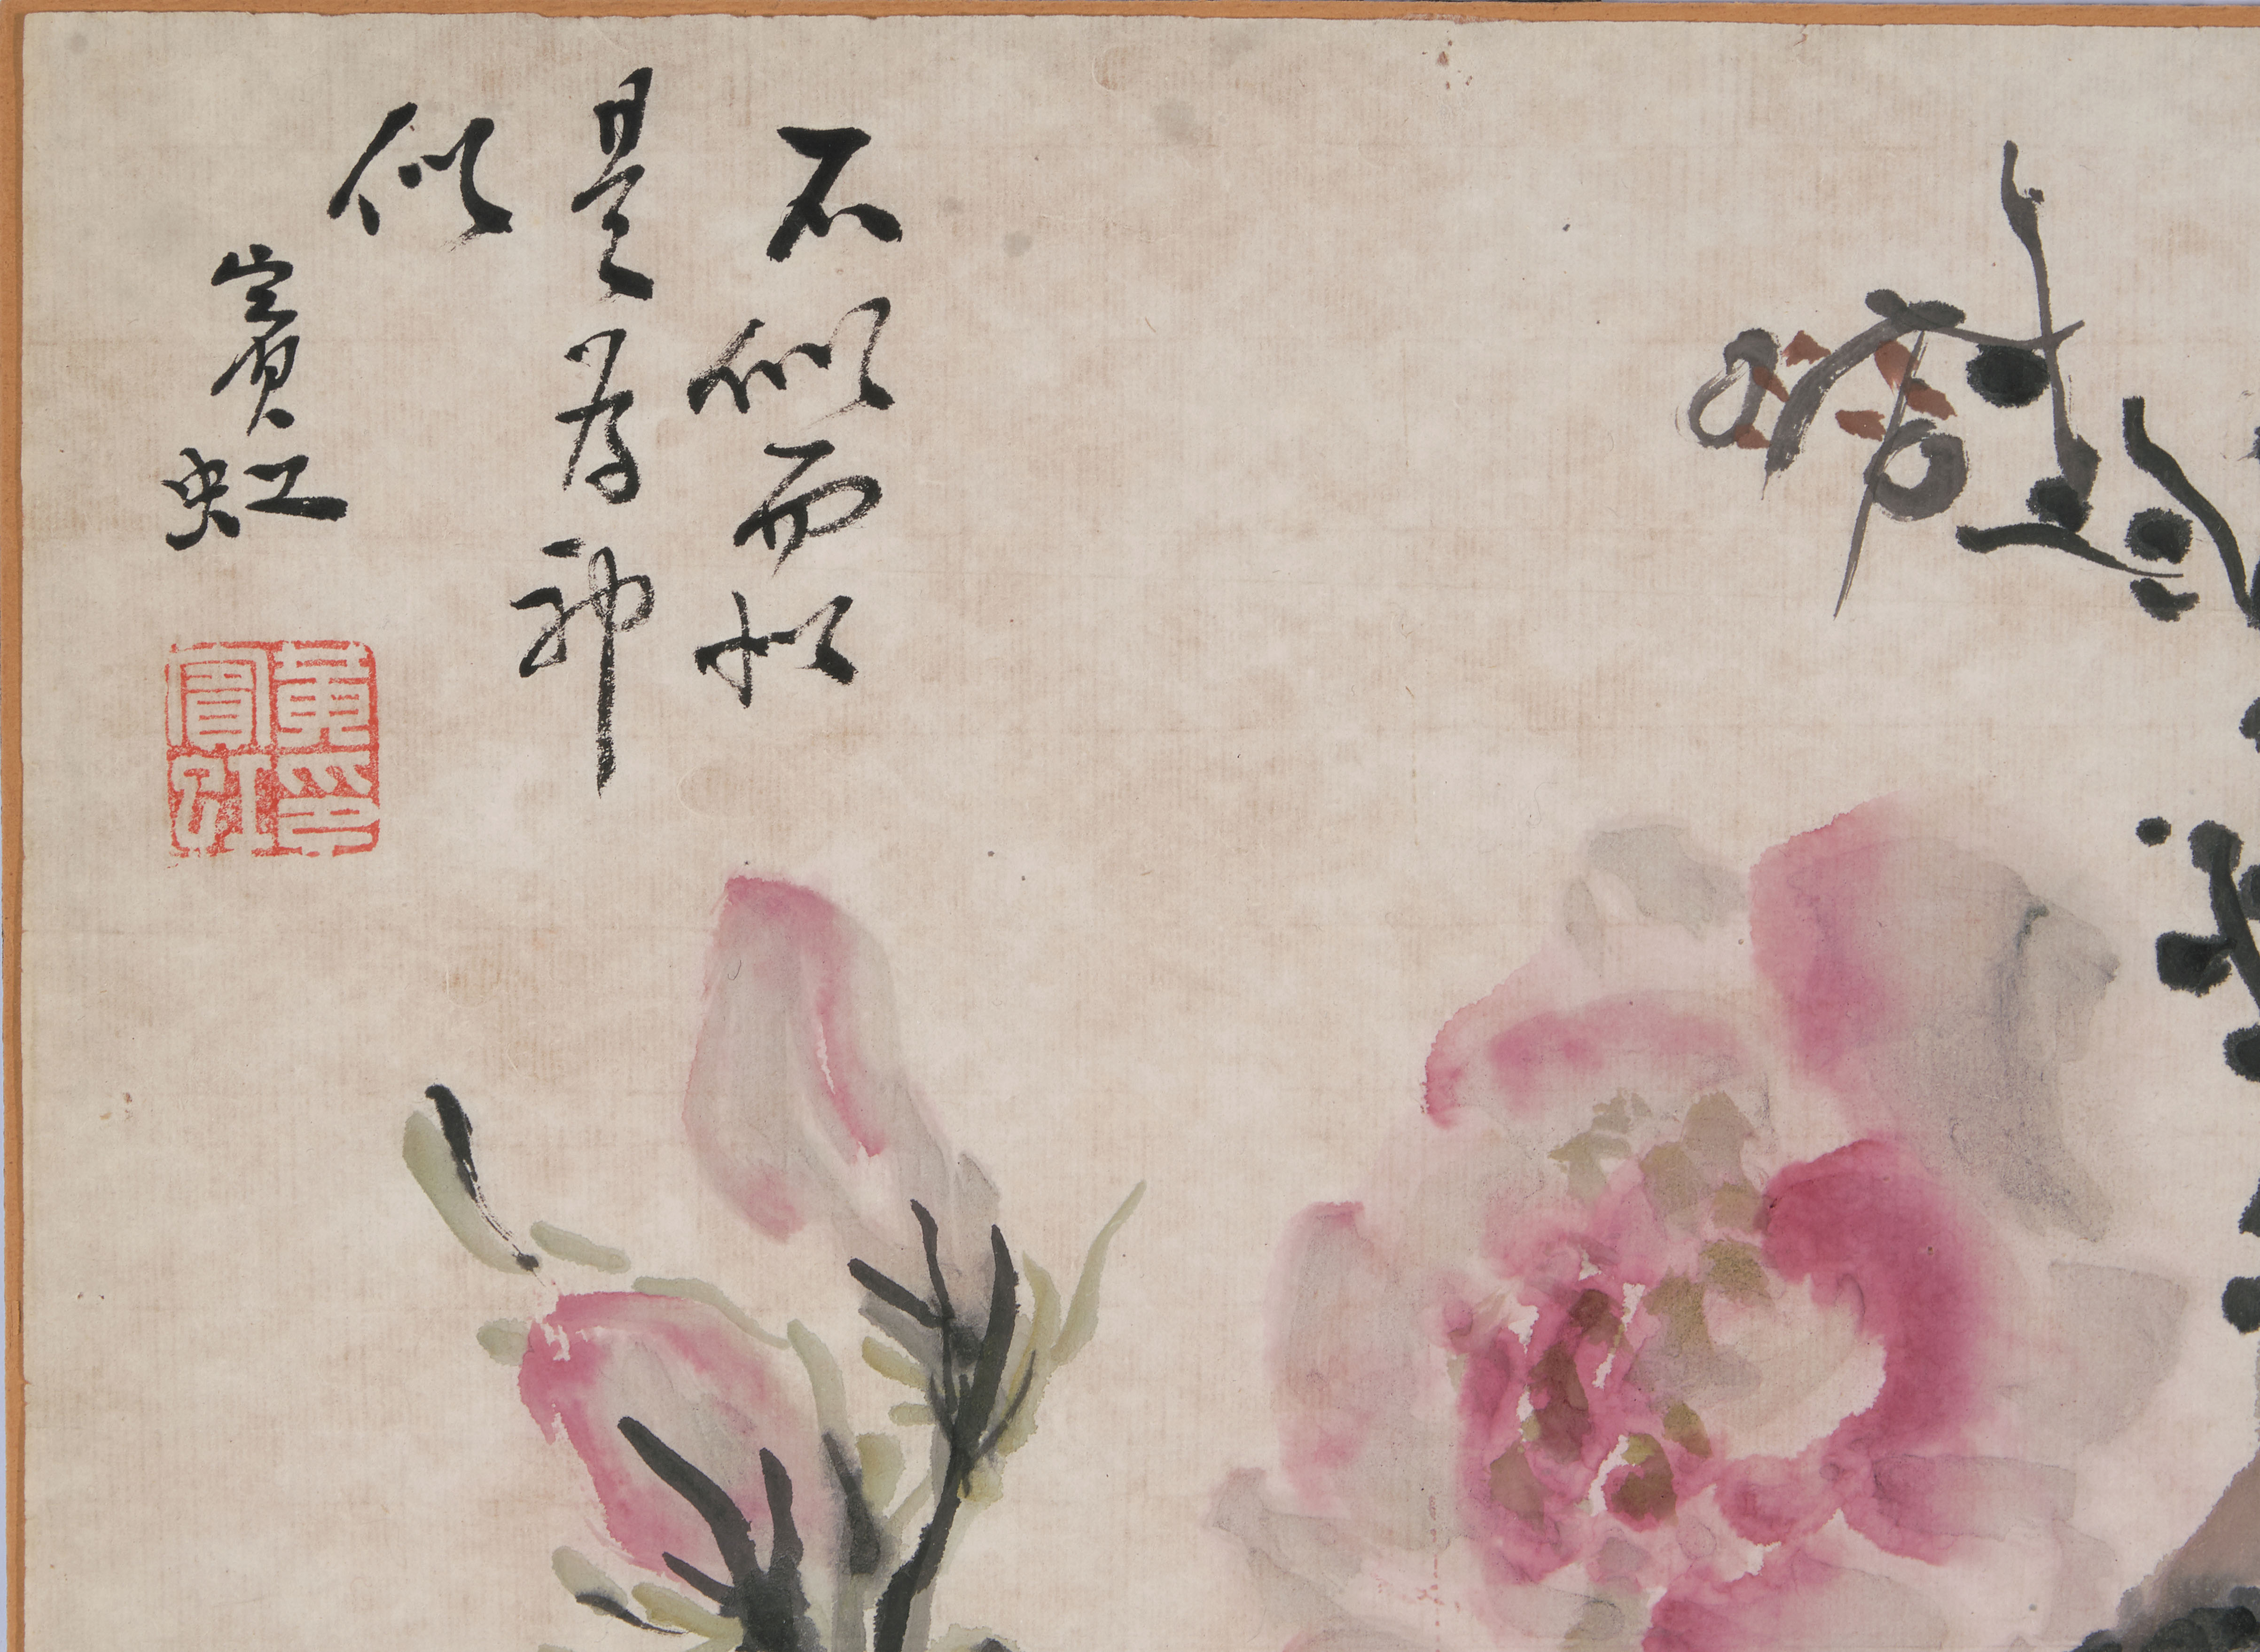 不似而似
是為神
似
賓虹
黃賓虹印